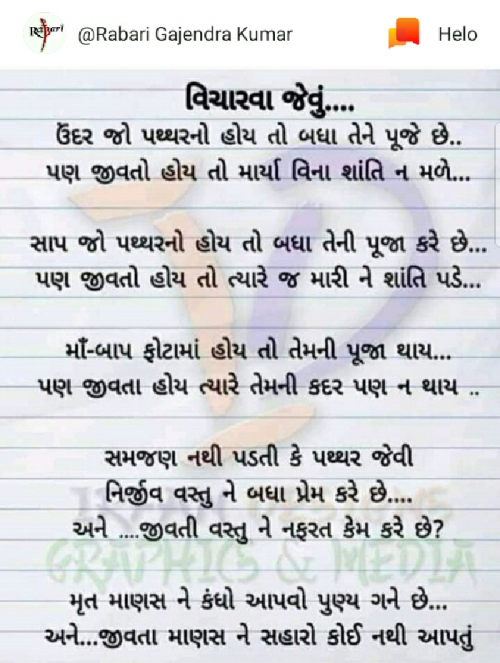 Rabari
@Rabari Gajendra Kumar
Helo
વિચારવા જેવું....
ઉંદર જો પથ્થરનો હોય તો બધા તેને પૂજે છે..
પણ જીવતો હોય તો માર્યા વિના શાંતિ ન મળે...
સાપ જો પથ્થરનો હોય તો બધા તેની પૂજા કરે છે...
પણ જીવતો હોય તો ત્યારે જ મારી ને શાંતિ પડે...
માઁ-બાપ ફોટામાં હોય તો તેમની પૂજા થાય...
પણ જીવતા હોય ત્યારે તેમની કદર પણ ન થાય ..
સમજણ નથી પડતી કે પથ્થર જેવી
નિર્જીવ વસ્તુ ને બધા પ્રેમ કરે છે....
અને ....જીવતી વસ્તુ ને નફરત કેમ કરે છે?
GRAPHICS & MEDIA
મૃત માણસ ને કંધો આપવો પુણ્ય ગને છે...
અને...જીવતા માણસ ને સહારો કોઈ નથી આપતું